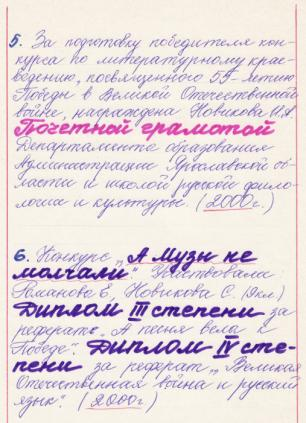 5. За подготовку победителя кон-
курса по литературному крае-
ведению, посвященного 55-летию
Победы в Великой Отечественной
войне, награждена Новикова И.А.
Почетной грамотой
Департамента образования
Администрации Ярославской об-
ласти и школой русской фило-
логии и культуры. (2000г.)
6. Конкурс „А Музы не
молчали". Участвовали:
Романова Е, Новикова С. (9кл.)
Диплом III степени за
реферат „А песня вела к
Победе". Диплом IV сте-
пени за реферат „Великая
Отечественная война и русский
язык". (2000г.)